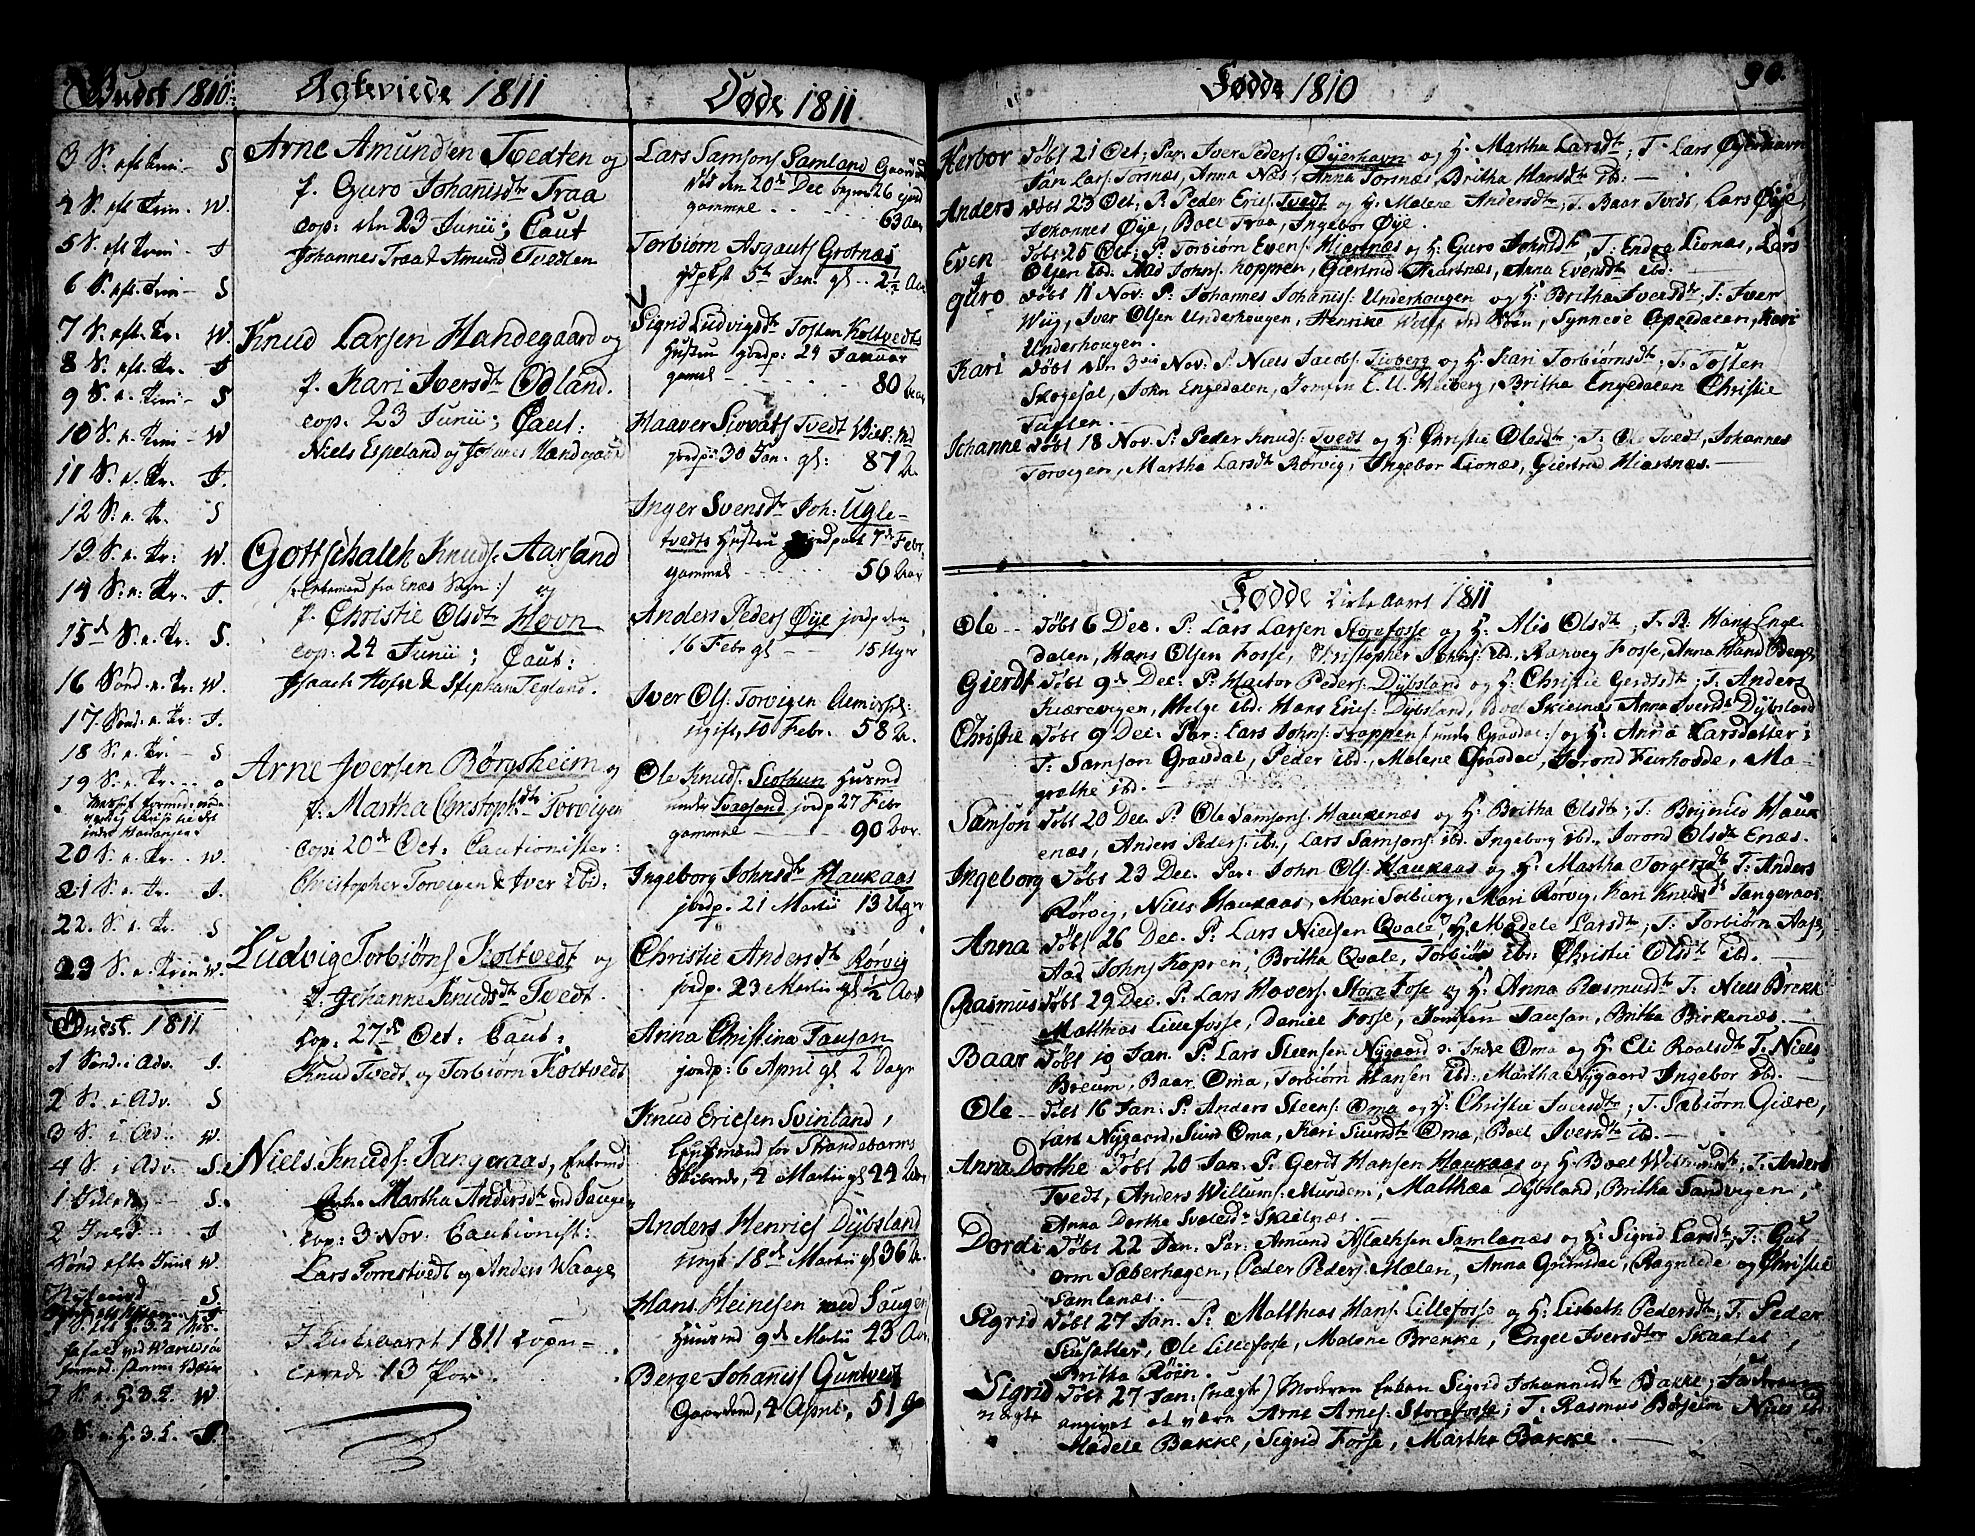 Gudst 1810.
3 S. eft Trin - S
4 S. eft Trin. - W.
5 S. eft Trin - J
6 S. eft. Trin - S
7 S. eft. Tr. W.
8 S. eft. Tr. J
9 S. e. Trin - S
10 S. e. Trin - W
11 S. e. Tr. J.
12 S. e. Tr. S
13 S. e. Tr. W.
14 S. e. Tr. J.
15de S. e. Tr. S.
16 Sønd. e. Tr. W.
17. Sønd. e. Tr. J.
18 S. e. Tri - S
19 S. e. Tr.
20 S. e. Tr. W.
21 S. e. Tr. J.
22. S. e. Tr. S
23 S. e. Trin W.
Gudst. 1811
1 Sønd. i Adv. J.
2 S. i Adv. S
3 S. i Adv. W.
4 S. i Adv. S.
1 Juledag S.
2 Juled. J
Sønd efter Juul W.
Nytaarsd S
2 S. e. H. 3. K. W
3 S. e. H. 3. K. J.
Ægteviede 1811
Arne Amundsen Tvedten og
p. Guro Johannisdtr Traa
cop: den 23 Junii; Caut
Johannes Traa & Amund Tvedten
Knud Larsen Handegaard og
p. Kari Iversdtr Ødland.
cop. 23 Junii; Caut:
Niels Espeland og Johannes Handegaard
Gottschalch Knuds: Aarsand
(: Enkemand fra Enæs Sogn :) og
p. Christie Olsdtr Hovn
cop: 24 Junii; Caut:
Isaach Hofse & Stephan Tegland.
Arne Iversen Børgsheim og
p. Martha Christophdtr Torvigen
cop: 20de Oct: Cautionister:
Christopher Torvigen & Iver ibd.
Ludvig Torbiørns Koltvedt og
p. Johanna Knudsdtr Tvedt.
cop: 27de Oct: Caut:
Knud Tvedt og Torbiørn Koltvedt
Niels Knuds: Tangeraas, Enkemd
Enke Martha Andersdtr ved Saugen
cop: 3 Nov. Cautionist:
Lars Torrestvedt og Anders Waage
I Kirkeaaret 1811 copu-
lerede 13 Par.
Døde 1811
Lars Samsons Samland Gaardmd
død den 20de Dec begr: 26 ejusd
gammel - - - 63 Aar
Torbiørn Asgauts Grotnæs
jordp: 5te Jan. gl - 2½ Aar
Sigrid Ludvigsdtr Tosten Koltvedts
Hustru jordp: 24 Januar
gamel - - - 80 Aar
Haaver Siovats Tvedt
jordp: 30 Jan. gl: 87 A.
Inger Svensdtr Joh: Ugle-
tvedts Hustru jordpaat 7de Febr.
gammel - - 56 Aar
Anders Peders Øye jordp den
16 Febr gl - - 15 Uger
Iver Ols Torvigen Almisse
ugift, 10 Febr. 58 A.
Ole Knuds. Siothun Husmd
under Svaasand jordp 27 Febr
gammel - - 90 Aar.
Ingeborg Johnsdtr Haukaas
jordp. 21 Martii 13 Uger
Christie Andersdtr Rørvig
jordp. 23 Martii gl ½ Aar
Anna Christina Tausan
jordp: 6 April gl 2 Dage
Knud Ericsen Svinland,
Lensmand for Strandebarms
Skibrede, 4 Martii gl 44 Aar
Anders Henrics Dybsland
ungk 18de Martii gl 36 A.
Hans Heinesen ved Saugen
Huusmd 9de Martii 43 Aar
Berge Johannis Guntvedt
Gaardmd, 4 April, 51 Aar
90.
Fødde 1810
Herbor Døbt 21 Oct; Par. Iver Peders: Øyerhavn og H. Martha Larsdtr; T. Lars Øyerhavn
Jan Lars: Torsnæs, Anna Næs, Anna Torsnæs, Britha Hansdtr ibd: -
Anders Døbt 23 Oct; P. Peder Erics: Tvedt og H. Malene Andersdtr; T. Baar Tvedt, Lars Øye,
Johannes Øye, Boel Traa, Ingebor Øye.
Even Døbt 28 Oct; P: Torbiørn Evens: Hiartnæs og H: Guro Johnsdtr; T: Endre Lionæs, Lars
Olsen ibd. Aad Johns. Koppren, Giertrud Hiartnæs, Anna Evensdtr ibd:
Guro Døbt 11 Nov: P: Johannes Johanis: Underhougen og H: Britha Iversdtr; T: Iver
Wiig, Iver Olsen Underhougen, Henrike Wolff ved Søen, Synneve Apeldalen, Kari
Underhougen.
Kari Døbt den 3die Nov. P. Niels Jacobs: Tioberg og H: Kari Torbiørnsdtr; T: Tosten
Skogesal, John Engedalen, Jomfru E. U. Heiberg, Britha Engedalen Christie
Tuften. -
Johanne Døbt 18 Nov. P: Peder Knuds: Tvedt og H: Christie Olsdtr; T: Ole Tvedt, Johannes
Torvigen, Martha Larsdtr Rørvig, Ingebor Lionæs, Giertrud Hiartnæs. -
Fødde Kirkeaaret 1811
Ole - Døbt 6 Dec. P: Lars Larsen Storefosse og H: Alis Olsdtr; T. B: Hans Enge-
dalen, Hans Olsen Fosse, Christopher Johns: ibd. Karveig Fosse, Anna
Gierdt Døbt 9de Dec. P: Hactor Peders: Dybsland og H: Christie Gerdtsdt; T: Anders
Kiærevigen, Helge ibd: Hans Erics: Dybsland, Boel Skielnæs Anna Iversdtr Dybsland
Christie Døbt 9 Dec: Par: Lars Johns: Kroppen (under Gravdal:) og H: Anna Larsdatter;
T: Samson Gravdal, Peder ibd, Malene Gravdal, Jorond Furhovde, Ma-
grethe ibd. -
Samson Døbt 20 Dec. P. Ole Samsons: Haukenæs og H: Britha Olsdtr; T: Brynild Hauk
enæs, Anders Peders: ibd., Lars Samsons ibd Ingeborg ibd. Jorond Olsdtr Enæs.
Ingeborg Døbt 23 Dec. Par: John Ols. Haukaas og H: Martha Torgersdtr T: Anders
Rørvig, Niels Haukaas, Mari Solberg, Mari Rørvig, Kari Knudsdtr Tangeraas.
Anna Døbt 26 Dec. P: Lars Nielsen Qvale, H. Madele Larsdtr; T: Torbiørn Aase,
Aad Johns Kopren, Britha Qvale, Torbiør ibd: Christie Olsdtr ibd. -
Rasmus Døbt 29 Dec. P: Lars Havers: Store Fosse og H: Anna Rasmusdtr T: Niels Brekke
Matthias Lillefosse, Daniel Fosse, Jomfru Tausan, Britha Birkenæs. -
Baar Døbt 19 Jan. P: Lars Steensen Nygaard v. Indre Oma og H. Eli Roalsdtr T. Niels
Breum, Baar Oma, Torbiørn Hansen ibd: Martha Nygaard Ingebor ibd. -
Ole - Døbt 16 Jan: P: Anders Steens: Oma og H: Christie Iversdtr; T. Sæbiørn Giære,
Lars Nygaard, Siur Oma, Kari Siursdtr Oma, Boel Iversdtr ibd. -
Anna Dorthe Døbt 20 Jan. P: Gerdt Hansen Haukaas og H: Boel Willumsdtr; T: Anders
Tvedt, Anders Willums: Mundem, Matthea Dybsland, Britha Sandvigen,
Anna Dorthe Skielnæs. -
Dordi Døbt 22 Jan. Par: Amund Aslachsen Samlanæs og H: Sigrid Larsdtr; T: Gut
orm Sæberhagen, Peder Peders Mælen, Anna Grimsdal, Ragnilde og Christie
Samlanæs. -
Sigrid Døbt 27 Jan. P: Matthias Hans: Lillefosse og H: Lisbeth Pedersdtr; T: Peder
Siusætter, Ole Lillefosse, Malene Brekke, Engel Iversdtr Skaatet,
Britha Røin.
Sigrid Døbt 27 Jan. (uægte) Moderen Enken Sigrid Johannisdtr Bakke; Fader
uægte angivet at være Arne Arnes: Storefosse; T: Rasmus Børsem Niels ibd.
Madele Bakke, Sigrid Fosse, Martha Bakke. -